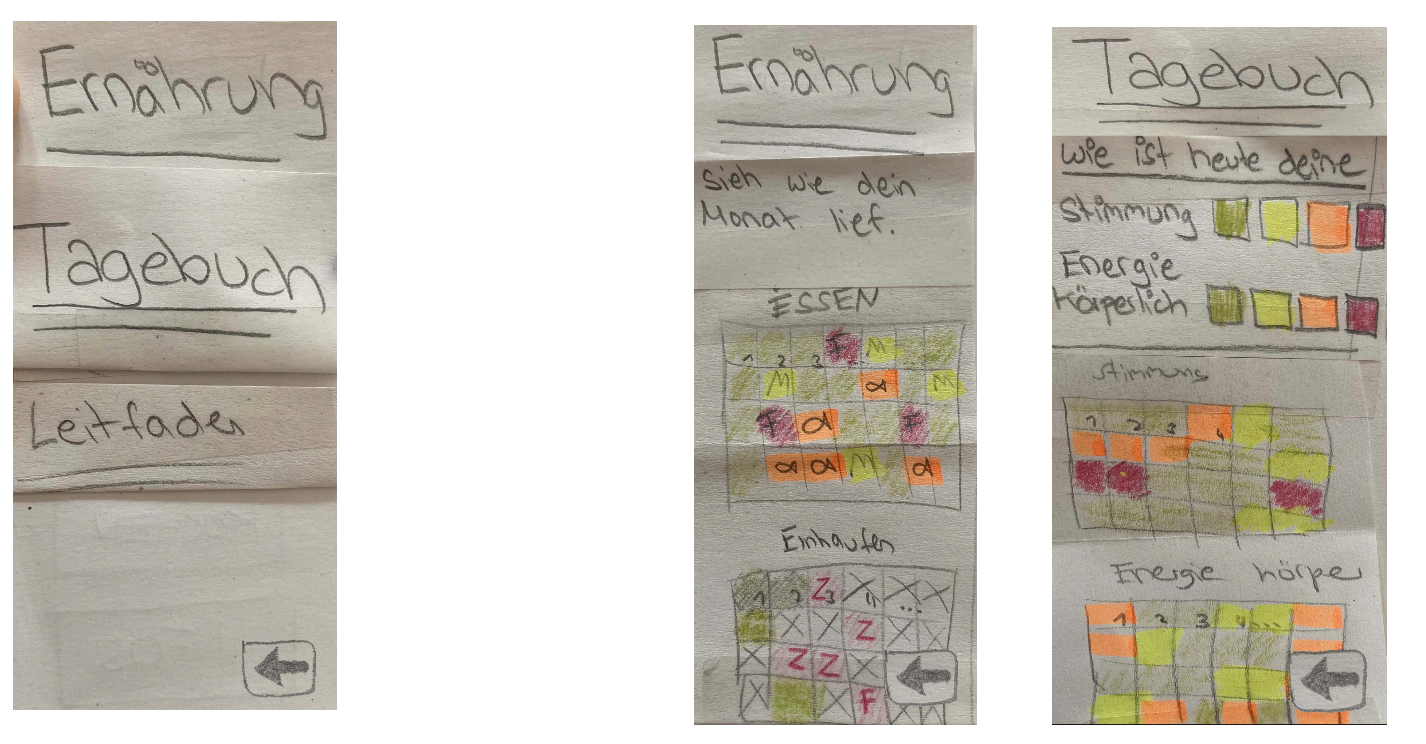 Ernährung
Tagebuch
Leitfaden
Ernährung
Sieh wie dein
Monat lief.
ESSEN
1 2 3 F M
M α M
F α F
α α M α
Einkaufen
1 2 Z3 X 4 X ... X
X X Z X X
X Z Z X
X X F X X
Tagebuch
Wie ist heute deine
Stimmung
Energie
Körperlich
Stimmung
1 2 3 4
Energie körper
1 2 3 4...